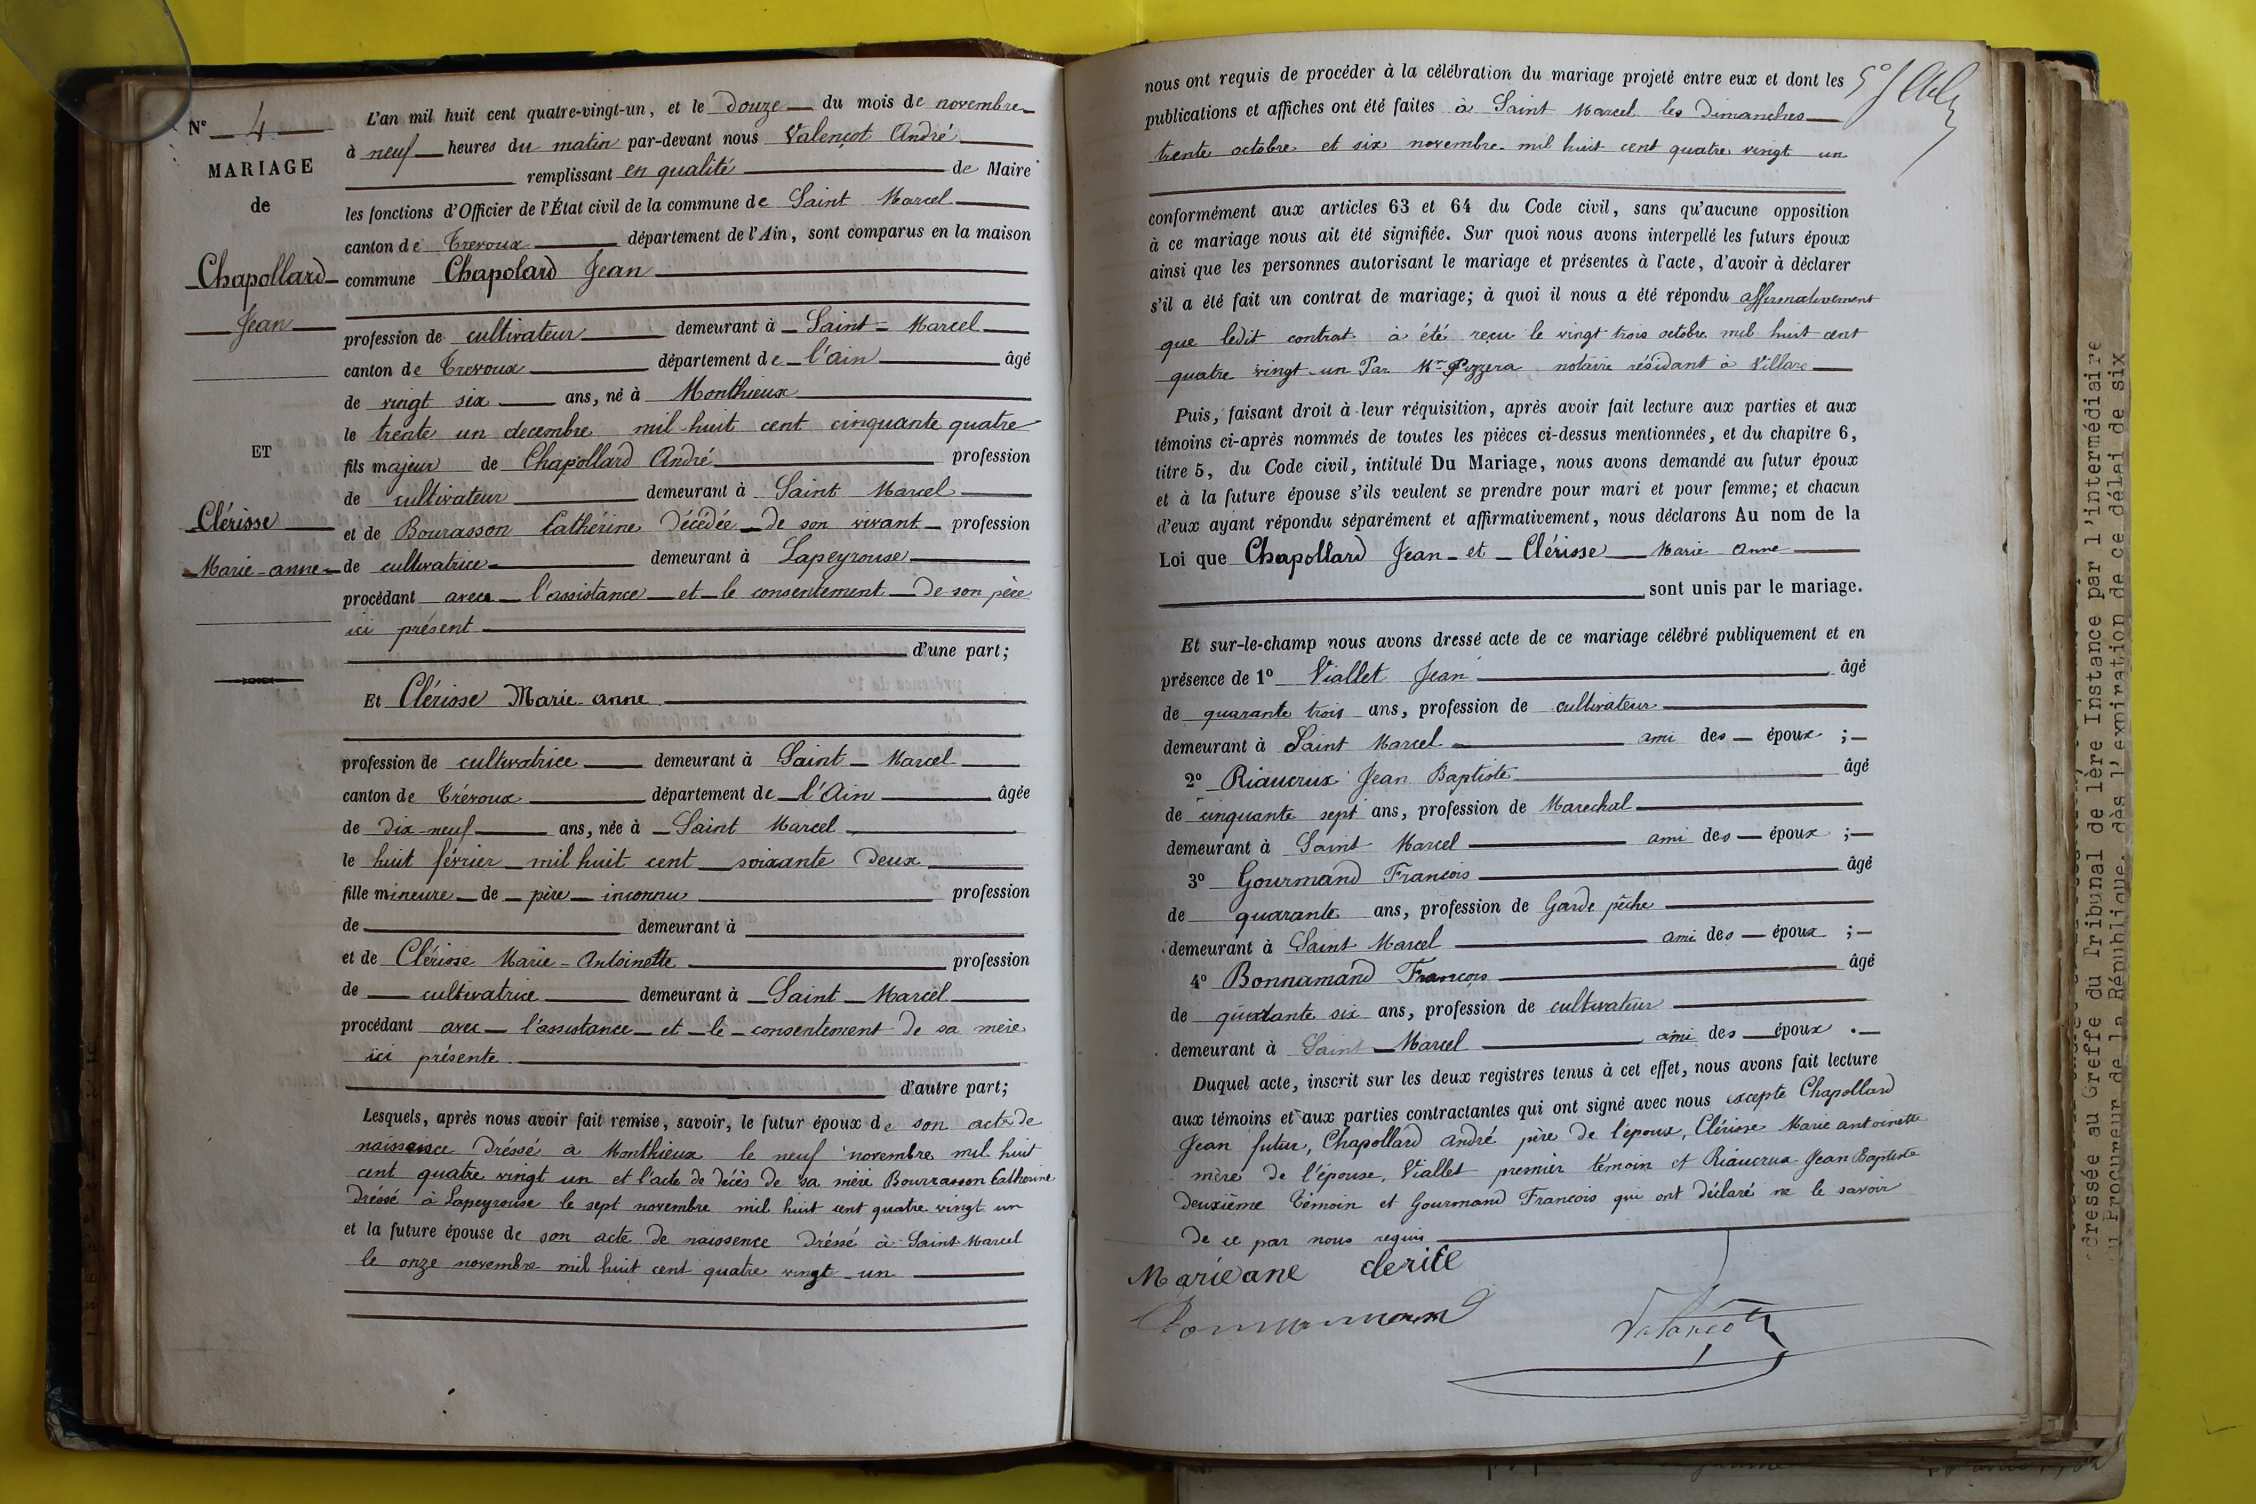 N° 4
MARIAGE
de
Chapollard
Jean
ET
Clérisse
Marie-anne
L'an mil huit cent quatre-vingt-un, et le douze du mois de novembre
à neuf heures du matin par-devant nous Valençot André
remplissant en qualité de Maire
les fonctions d'Officier de l'État civil de la commune de Saint Marcel
canton de Trevoux département de l'Ain, sont comparus en la maison
commune Chapolard Jean
profession de cultivateur demeurant à Saint-Marcel
canton de Trevoux département de l'ain âgé
de vingt six ans, né à Monthieux
le trente un decembre mil huit cent cinquante quatre
fils majeur de Chapollard André profession
de cultivateur demeurant à Saint Marcel
et de Bourasson Cathérine Décédée de son vivant profession
de cultivatrice demeurant à Lapeyrouse
procédant avec l'assistance et le consentement de son père
ici présent
d'une part;
Et Clérisse Marie-anne
profession de cultivatrice demeurant à Saint-Marcel
canton de Trévoux département de l'Ain âgée
de dix-neuf ans, née à Saint Marcel
le huit février mil huit cent soixante deux
fille mineure de père inconnu profession
de demeurant à
et de Clérisse Marie-Antoinette profession
de cultivatrice demeurant à Saint Marcel
procédant avec l'assistance et le consentement de sa mère
ici présente
d'autre part;
Lesquels, après nous avoir fait remise, savoir, le futur époux de son acte de
naissance dréssé a Monthieux le neuf novembre mil huit
cent quatre vingt un et l'acte de décès de sa mère Bourrasson Cathérine
dréssé à Lapeyrouse le sept novembre mil huit cent quatre vingt un
et la future épouse de son acte de naissence dréssé à Saint Marcel
le onze novembre mil huit cent quatre vingt-un
nous ont requis de procéder à la célébration du mariage projeté entre eux et dont les
publications et affiches ont été faites à Saint Marcel les Dimanches
trente octobre et six novembre mil huit cent quatre vingt un
conformément aux articles 63 et 64 du Code civil, sans qu'aucune opposition
à ce mariage nous ait été signifiée. Sur quoi nous avons interpellé les futurs époux
ainsi que les personnes autorisant le mariage et présentes à l'acte, d'avoir à déclarer
s'il a été fait un contrat de mariage; à quoi il nous a été répondu affirmativement
que ledit contrat à été reçu le vingt trois octobre mil huit cent
quatre vingt un Par Mr Pozzera notaire résidant à Villars
Puis, faisant droit à leur réquisition, après avoir fait lecture aux parties et aux
témoins ci-après nommés de toutes les pièces ci-dessus mentionnées, et du chapitre 6,
titre 5, du Code civil, intitulé Du Mariage, nous avons demandé au futur époux
et à la future épouse s'ils veulent se prendre pour mari et pour femme; et chacun
d'eux ayant répondu séparément et affirmativement, nous déclarons Au nom de la
Loi que Chapollard Jean et Clérisse Marie-anne
sont unis par le mariage.
Et sur-le-champ nous avons dressé acte de ce mariage célébré publiquement et en
présence de 1° Viallet Jean âgé
de quarante trois ans, profession de cultivateur
demeurant à Saint Marcel ami des époux ;
2° Riaucrux Jean Baptiste âgé
de cinquante sept ans, profession de Marechal
demeurant à Saint Marcel ami des époux ;
3° Gourmand Francois âgé
de quarante ans, profession de Garde pêche
demeurant à Saint Marcel ami des époux ;
4° Bonnamand François âgé
de six ans, profession de cultivateur
demeurant à Saint Marcel ami des époux .
Duquel acte, inscrit sur les deux registres tenus à cet effet, nous avons fait lecture
aux témoins et aux parties contractantes qui ont signé avec nous excepte Chapollard
Jean futur, Chapollard andré père de l'époux, Clérisse Marie antoinette
mère de l'épouse, Viallet premier témoin et Riaucrux Jean Baptiste
deuxième témoin et Gourmand Francois qui ont déclaré ne le savoir
de ce par nous requis
Marie ane clerice
Bonnamand
Valançot
dressée au Greffe du Tribunal de 1ère Instance par l'intermédiaire
du Procureur de la République, dès l'expiration de ce délai de six